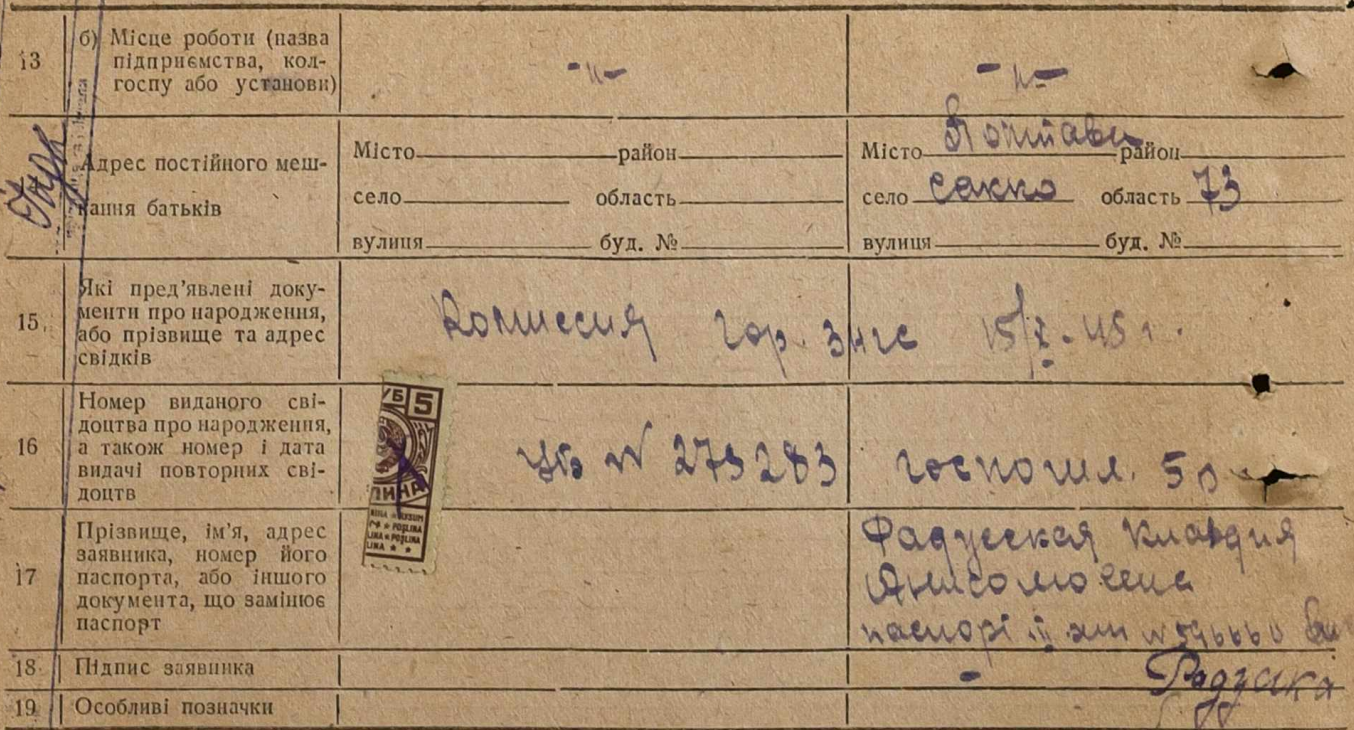 13 б) Місце роботи (назва
підприємства, кол-
госпу або установи) -„- -„-
Адрес постійного меш-
кання батьків
Місто район
село область
вулиця буд. №
Місто Полтава район
село Сакко область 73
вулиця буд. №
15 Які пред'явлені доку-
менти про народження,
або прізвище та адрес
свідків
Комиссия гор. загс 15/X-45 г.
16 Номер виданого сві-
доцтва про народження,
а також номер і дата
видачі повторних сві-
доцтв
УБ 5
№ 273283 госпошл. 5 р
17 Прізвище, ім'я, адрес
заявника, номер його
паспорта, або іншого
документа, що замінює
паспорт
Клавдия
паспорт
18 Підпис заявника -
19 Особливі позначки